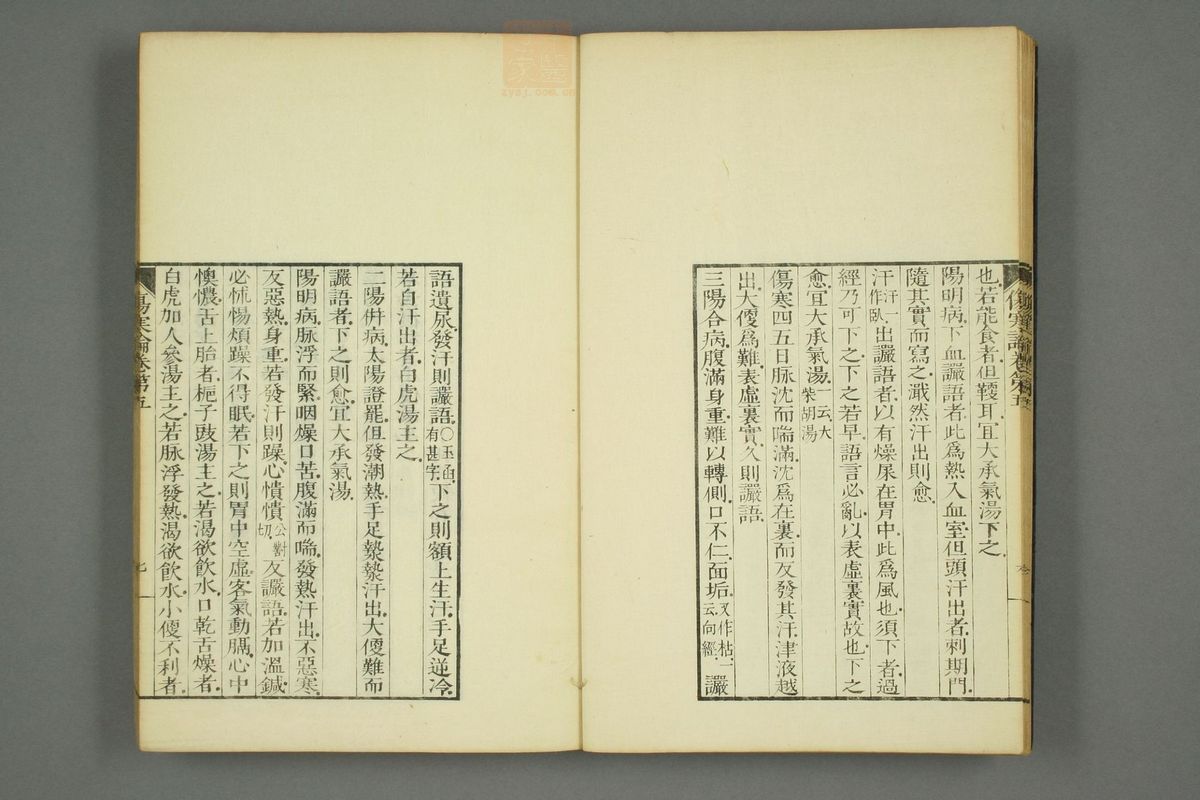 也若能食者但鞕耳宜大承氣湯下之
陽明病下血讝語者此爲熱入血室但頭汗出者刺期門
隨其實而寫之濈然汗出則愈
汗汗一作臥出讝語者以有燥屎在胃中此爲風也須下者過
經乃可下之下之若早語言必亂以表虛裏實故也下之
愈宜大承氣湯一云大柴胡湯
傷寒四五日脉沈而喘滿沈爲在裏而反發其汗津液越
出大便爲難表虛裏實久則讝語
三陽合病腹滿身重難以轉側口不仁面垢又作枯一云向經讝
語遺尿發汗則讝語○玉函有甚字下之則額上生汗手足逆冷
若自汗出者白虎湯主之
二陽併病太陽證罷但發潮熱手足漐漐汗出大便難而
讝語者下之則愈宜大承氣湯
陽明病脉浮而緊咽燥口苦腹滿而喘發熱汗出不惡寒
反惡熱身重若發汗則躁心憒憒公對切反讝語若加溫鍼
必怵惕煩躁不得眠若下之則胃中空虛客氣動膈心中
懊憹舌上胎者梔子豉湯主之若渴欲飲水口乾舌燥者
白虎加人參湯主之若脉浮發熱渴欲飲水小便不利者
傷寒論卷第五
九
zysj.com.cn